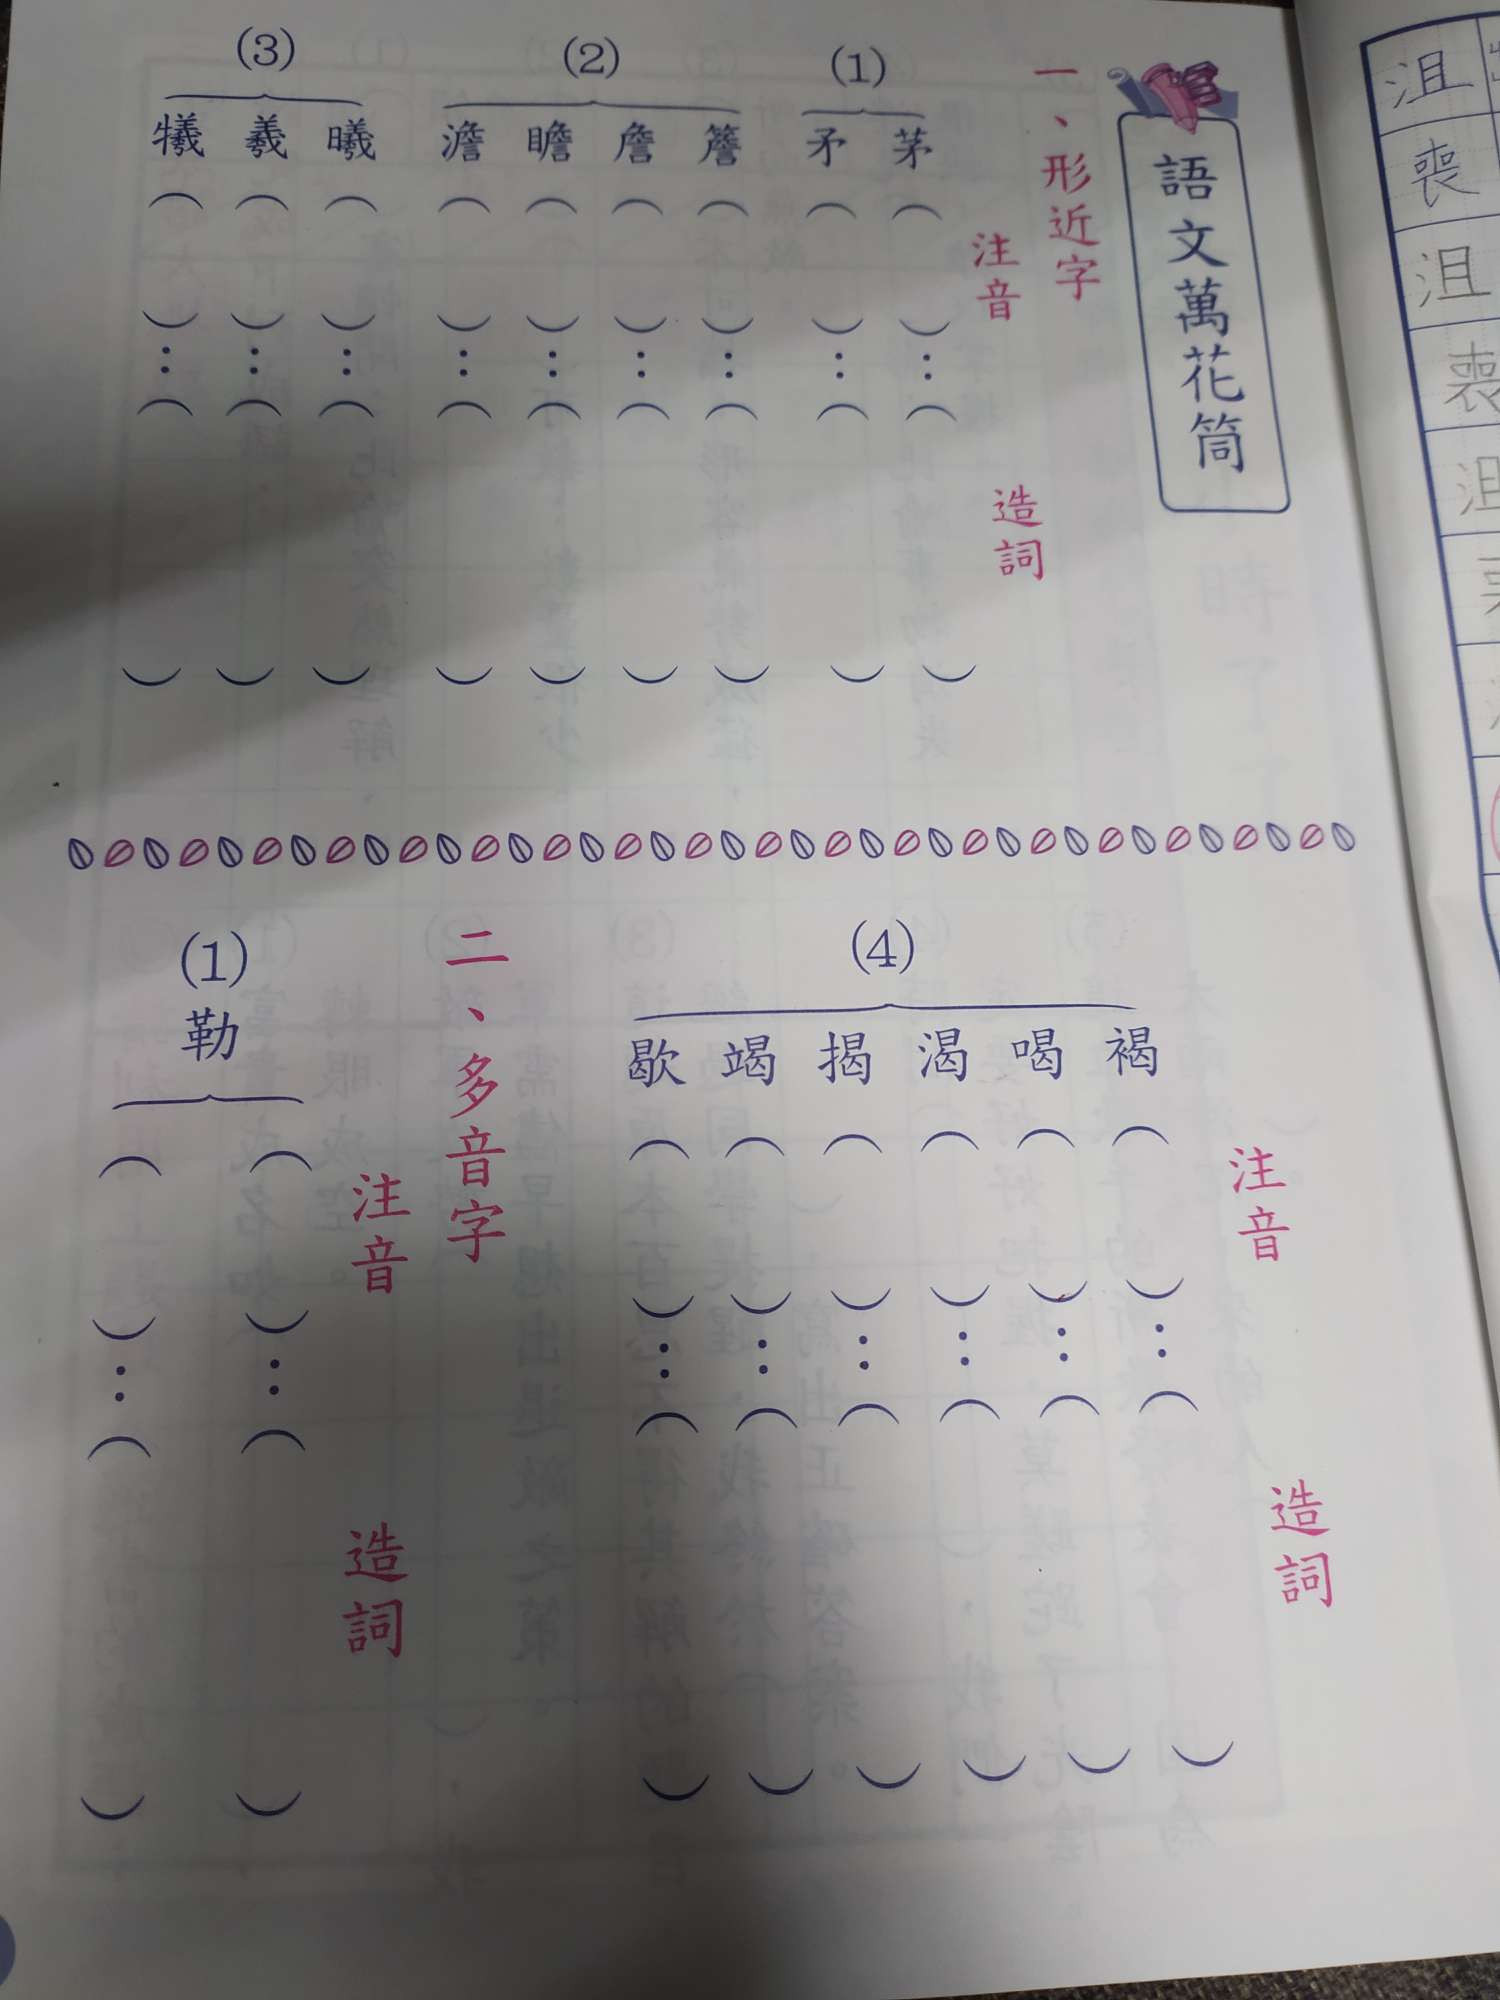 語文萬花筒
一、形近字
注音 造詞
(1)
茅( ):( )
矛( ):( )
(2)
簷( ):( )
詹( ):( )
瞻( ):( )
澹( ):( )
(3)
曦( ):( )
羲( ):( )
犧( ):( )
注音 造詞
(4)
褐( ):( )
喝( ):( )
渴( ):( )
揭( ):( )
竭( ):( )
歇( ):( )
二、多音字
注音 造詞
(1)
勒
( ):( )
( ):( )
沮
喪
沮
喪
沮